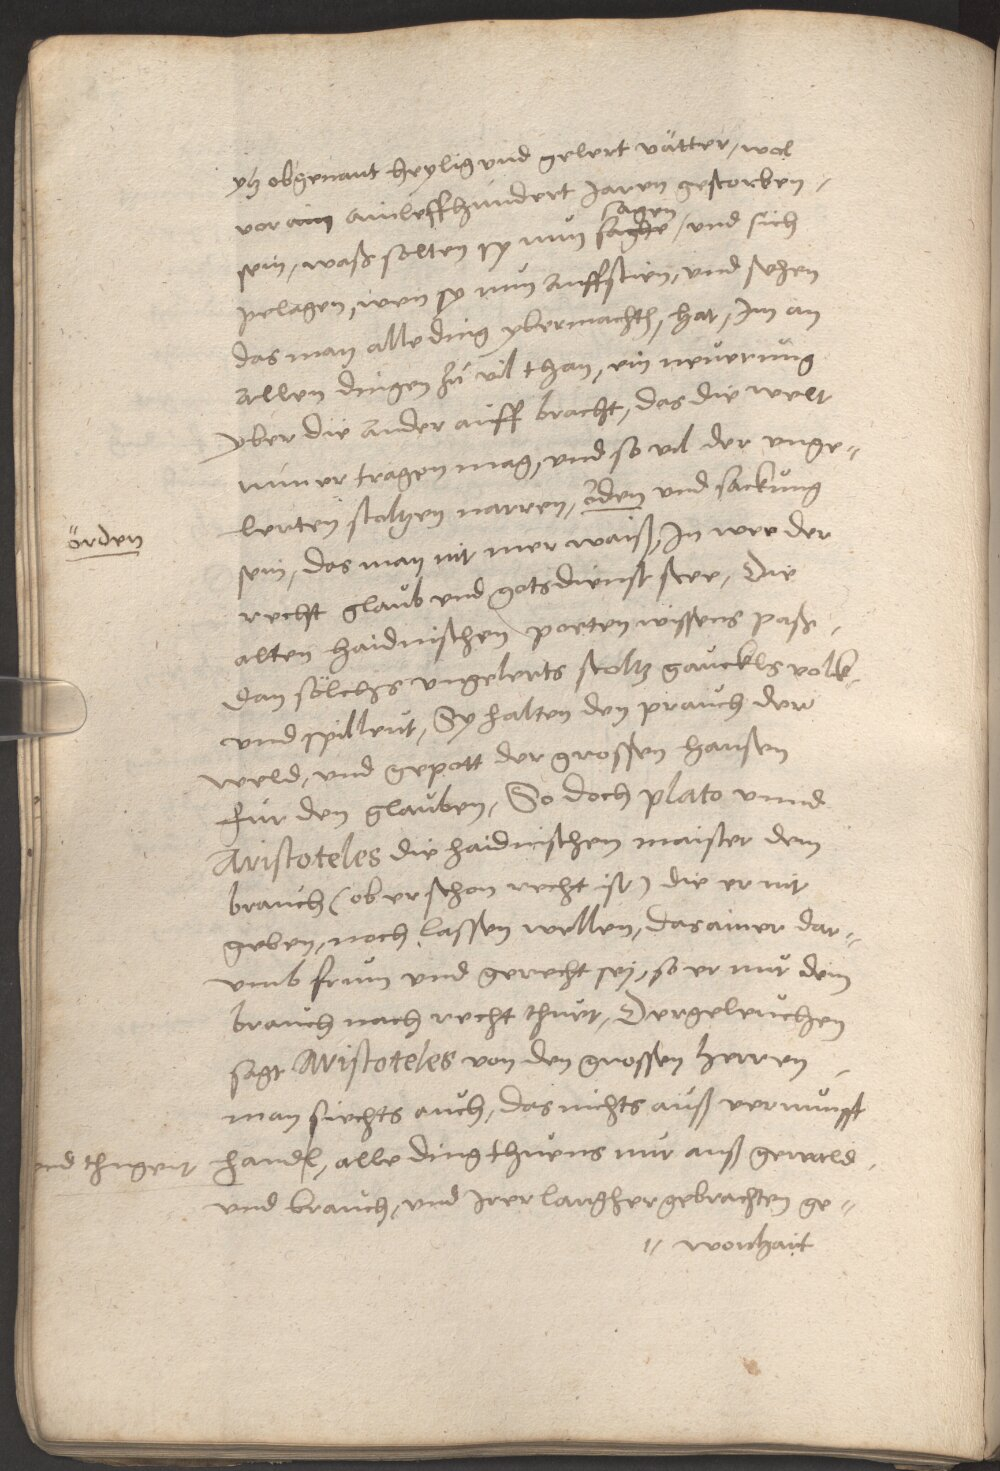 yz obgenant heylig und gelert vätter, wol
vor ainleffhundert Jaren gestorben
sein, waß solten sy nun sagen, und sich
peclagen, wen sy nun auffstien, und sehen
das man alle ding ybermachth, hat, Im an
allen dingen zu vil than, ein neuerung
yber die ander auff bracht, das die welt
nim ertragen mag, und so vil der unge-
lerten stoltzen narren, öden und sackung
örden
sein, das man nit mer waiß, In wee der
recht glaub und gotsdienst stee, Die
alten haidnischen poeten wissens paß,
dan sölchs ungelerts stoltz gauckls volk
und spilleut, Sy halten den prauch der
weld, und gepott der grossen hansen
für den glauben, So doch plato unnd
Aristoteles die haidnischen maister dem
brauch (ob er schon recht ist) die er nit
geben, noch lassen wellen, das ainer dar-
umb frum und gerecht sej, so er nur dem
brauch nach recht thuet, Dergeleichen
sagt Aristoteles von den grossen herren
man siechts auch, das nichts auß vernunfft
und thugent handl, alle ding thuens nur auß gewald
und brauch, und Irer langhergebrachten ge-
wonhait